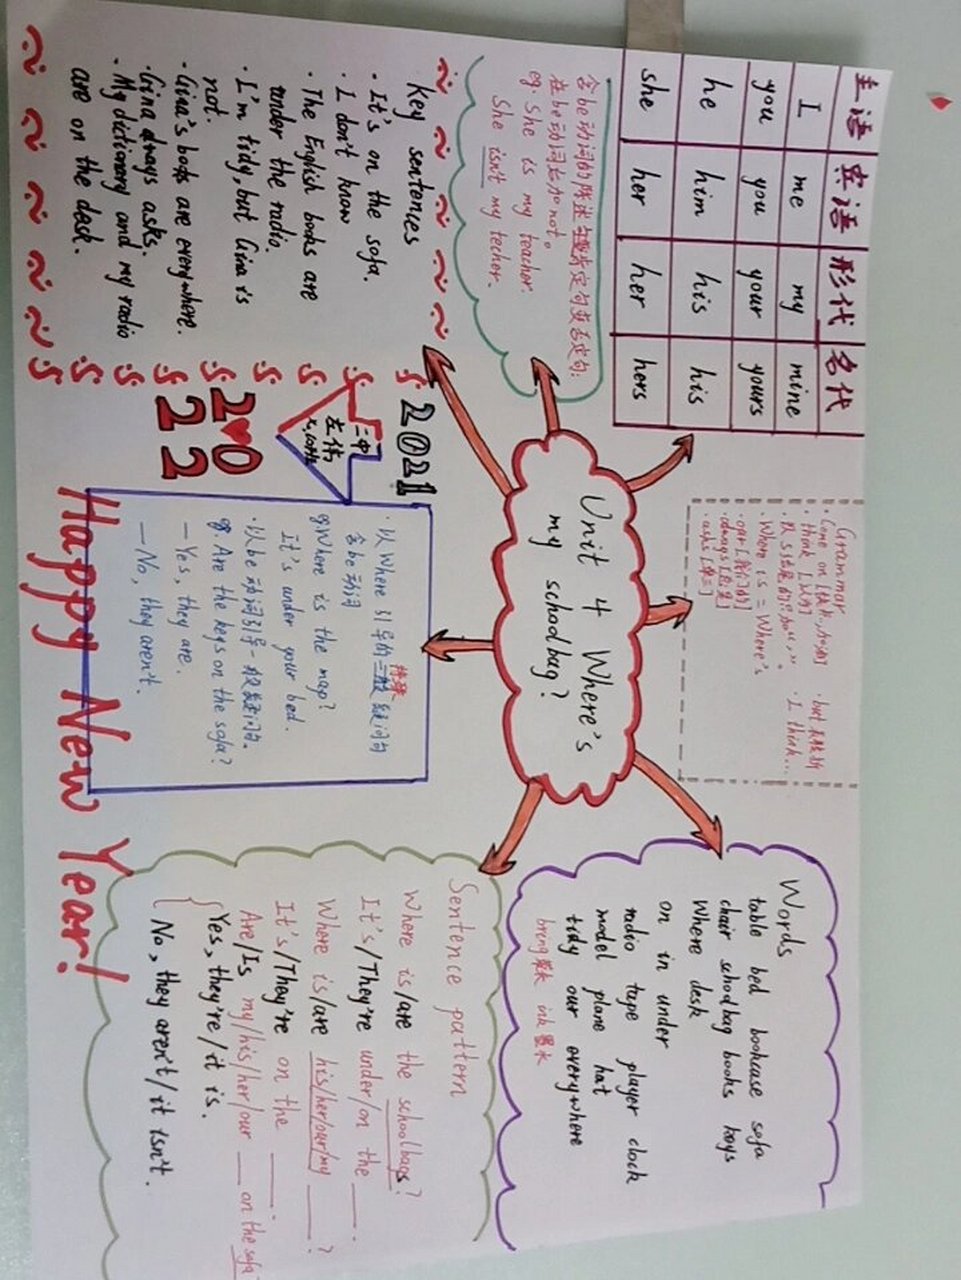 主语 宾语 形代 名代
I me my mine
you you your yours
he him his his
she her her hers
含be动词的陈述句变肯定句变否定句:
在be动词后加not。
eg. She is my teacher.
She isn't my techer.
key sentences
· It's on the sofa.
· I don't know
· The English books are
under the radio.
· I'm tidy, but Gina is
not.
· Gina's books are everywhere.
· Gina always asks.
· My dictionary and my radio
are on the desk.
Unit 4 Where's
my schoolbag?
Grammar
· Come on
· think
· Where is = Where's
· our [我们的]
· always [总是]
· asks [单三]
· but
· I think...
2021
二中
左伟
2022
Happy New Year!
· 以 Where 引导的特殊疑问句
含be动词
eg. Where is the map?
It's under your bed.
· 以be动词引导一般疑问句.
eg. Are the keys on the sofa?
— Yes, they are.
— No, they aren't.
Words
table bed bookcase sofa
chair schoolbag books keys
Where desk
on in under
radio tape player clock
model plane hat
tidy our everywhere
ink 墨水
Sentence pattern
Where is/are the schoolbags?
It's/They're under/on the ___.
Where is/are his/her/our/my ___?
It's/They're on the ___.
Are/Is my/his/her/our ___ on the sofa
Yes, they're/it is.
No, they aren't/it isn't.